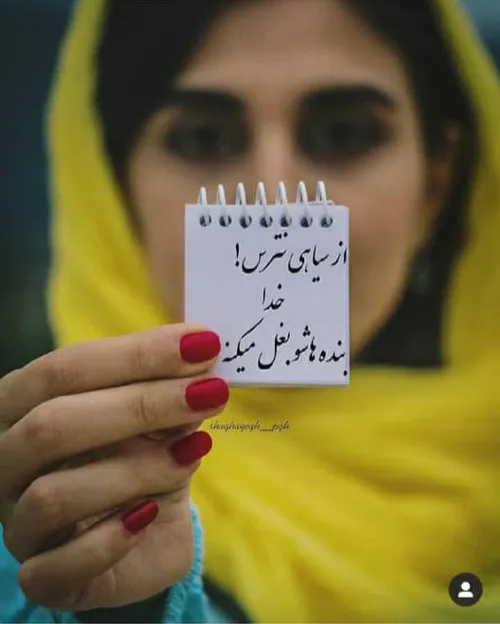 از سیاهی نترس!
خدا
بنده هاشو بغل میکنه